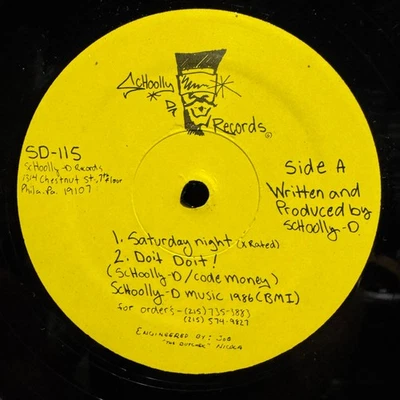 Schoolly
D
Records
SD-115
Schoolly-D Records
1314 Chestnut St., 7th floor
Phila. Pa. 19107
Side A
Written and
Produced by
Schoolly-D.
1. Saturday night (X Rated)
2. Doit Doit!
(Schoolly-D/code money)
Schoolly-D music 1986 (BMI)
for orders - (215) 735-3883
(215) 574-9827
Engineered by: Joe
"The Butcher" Nicka